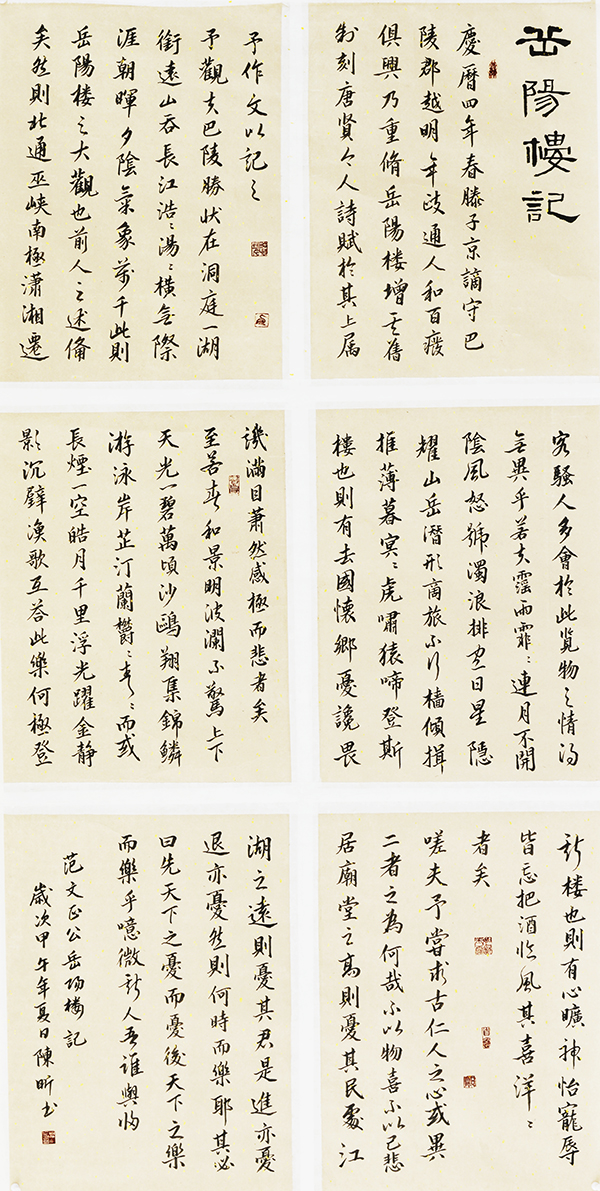 岳陽樓記
慶曆四年春滕子京謫守巴
陵郡越明年政通人和百廢
俱興乃重脩岳陽楼增其舊
制刻唐賢今人詩賦於其上属
予作文以記之
予觀夫巴陵勝狀在洞庭一湖
銜遠山吞長江浩〻湯〻橫無際
涯朝暉夕陰氣象萬千此則
岳陽楼之大觀也前人之述備
矣然則北通巫峽南極瀟湘遷
客騷人多會於此览物之情得
無異乎若夫霪雨霏〻連月不開
陰風怒號濁浪排空日星隱
耀山岳潛形商旅不行檣傾楫
摧薄暮冥〻虎嘯猿啼登斯
樓也則有去國懷鄉憂讒畏
譏滿目蕭然感極而悲者矣
至若春和景明波瀾不驚上下
天光一碧萬頃沙鷗翔集錦鱗
游泳岸芷汀蘭鬱〻青〻而或
長煙一空皓月千里浮光躍金静
影沉璧漁歌互答此樂何極登
斯楼也則有心曠神怡寵辱
皆忘把酒臨風其喜洋〻
者矣
嗟夫予嘗求古仁人之心或異
二者之為何哉不以物喜不以己悲
居廟堂之高則憂其民處江
湖之遠則憂其君是進亦憂
退亦憂然則何時而樂耶其必
曰先天下之憂而憂後天下之樂
而樂乎噫微斯人吾誰與归
范文正公岳陽楼記
歲次甲午年夏日陳昕书